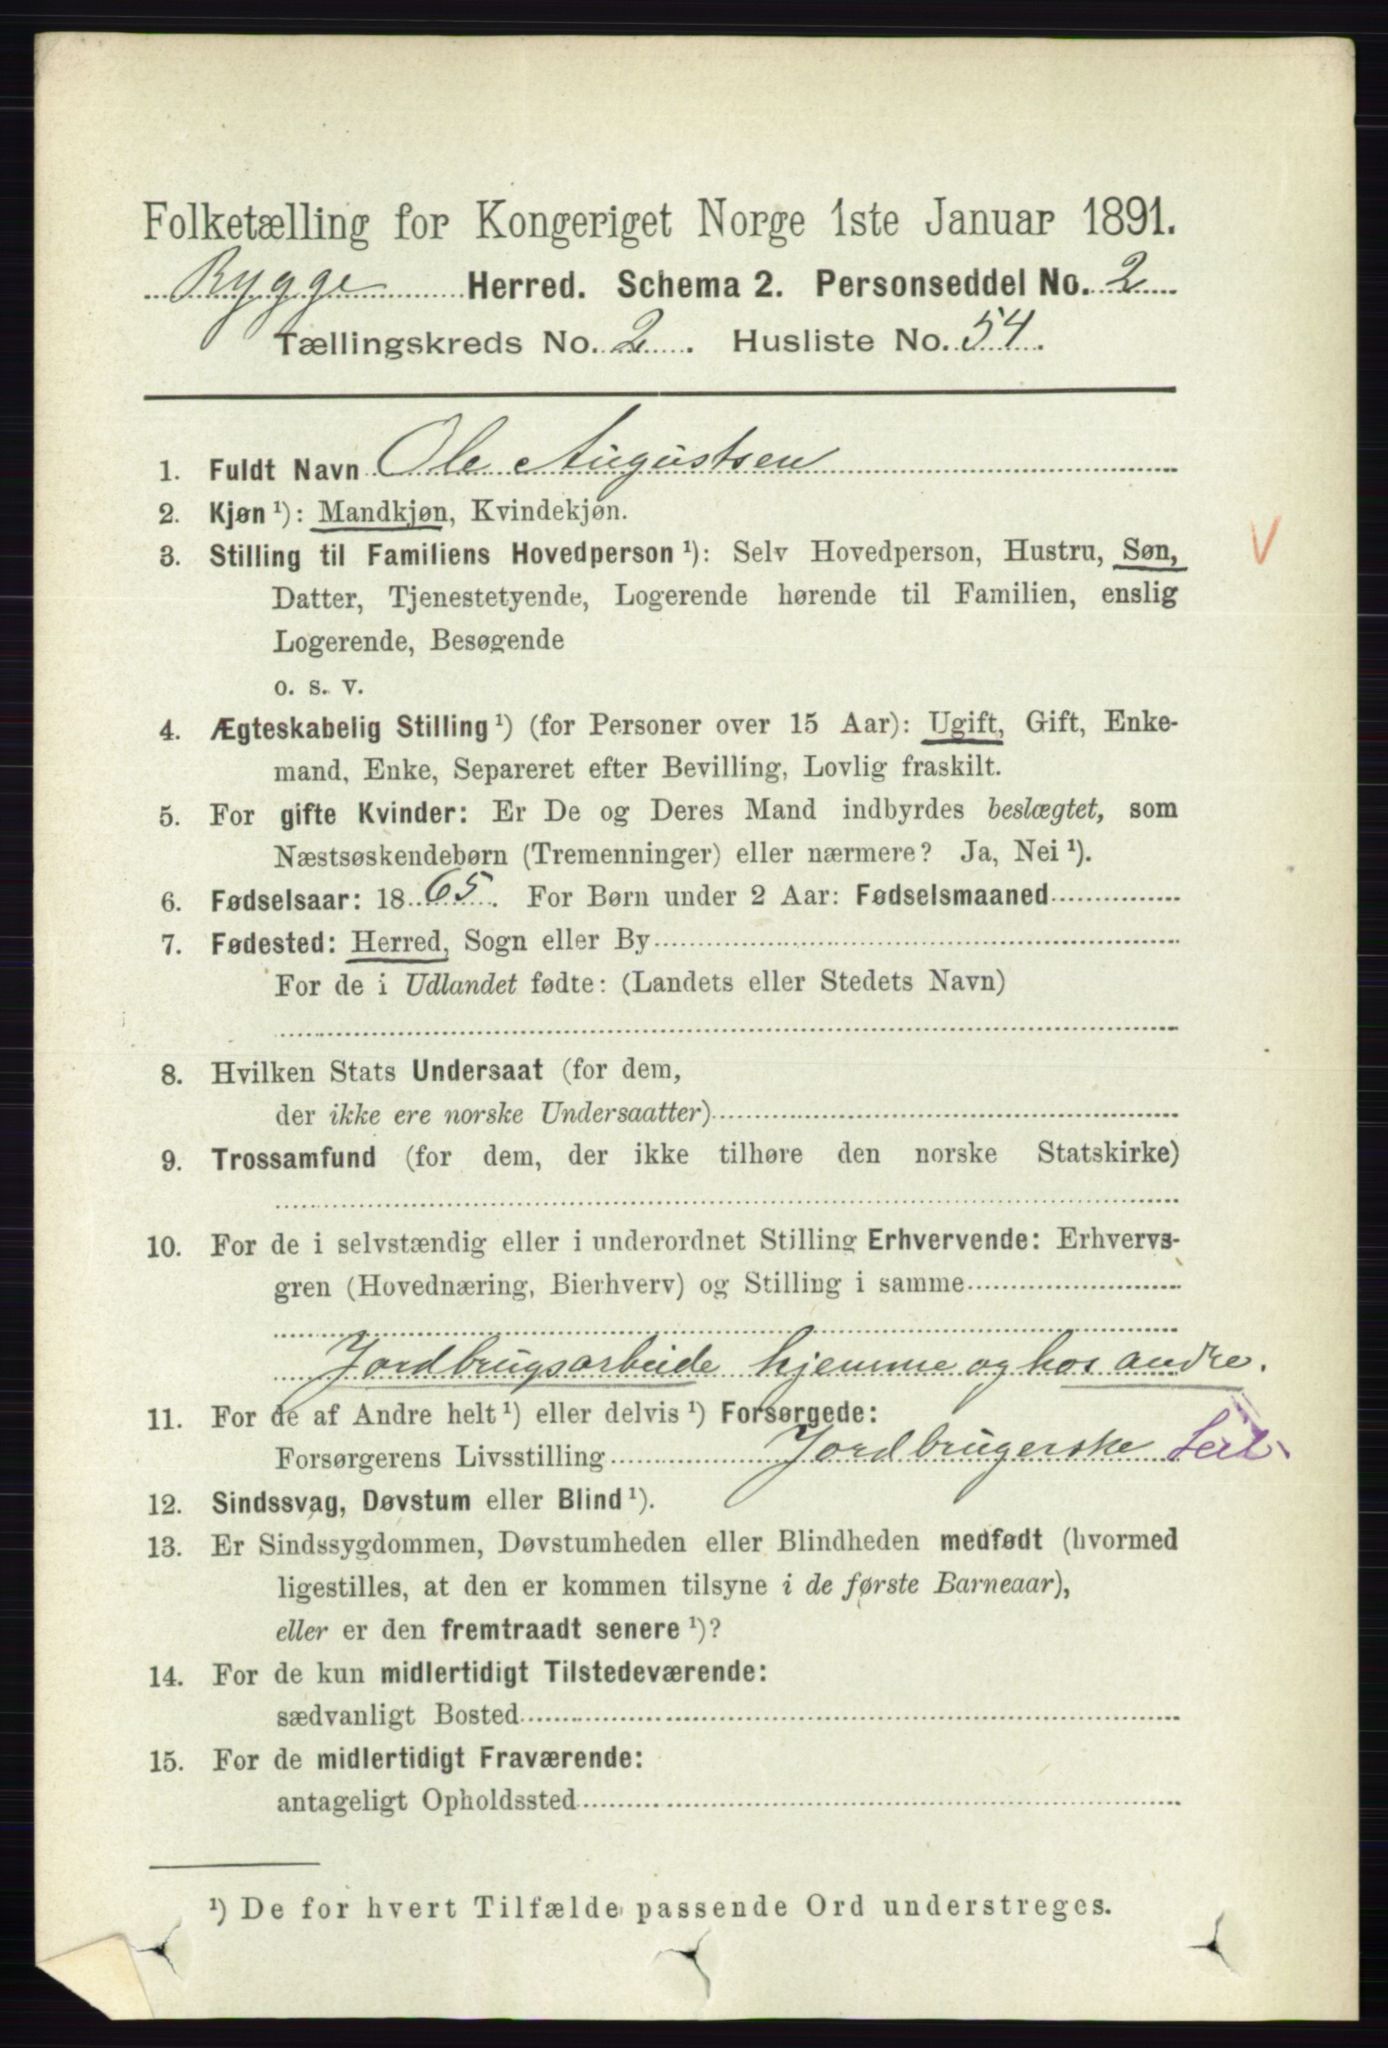 Folketælling for Kongeriget Norge 1ste Januar 1891.
Rygge Herred. Schema 2. Personseddel No. 2
Tællingskreds No. 2. Husliste No. 54.
1. Fuldt Navn Ole Augustsen
2. Kjøn ¹): Mandkjøn, Kvindekjøn.
3. Stilling til Familiens Hovedperson ¹): Selv Hovedperson, Hustru, Søn,
Datter, Tjenestetyende, Logerende hørende til Familien, enslig
Logerende, Besøgende
o. s. v.
4. Ægteskabelig Stilling ¹) (for Personer over 15 Aar): Ugift, Gift, Enke-
mand, Enke, Separeret efter Bevilling, Lovlig fraskilt.
5. For gifte Kvinder: Er De og Deres Mand indbyrdes beslægtet, som
Næstsøskendebørn (Tremenninger) eller nærmere? Ja, Nei ¹).
6. Fødselsaar: 1865. For Børn under 2 Aar: Fødselsmaaned
7. Fødested: Herred, Sogn eller By
For de i Udlandet fødte: (Landets eller Stedets Navn)
8. Hvilken Stats Undersaat (for dem,
der ikke ere norske Undersaatter)
9. Trossamfund (for dem, der ikke tilhøre den norske Statskirke)
10. For de i selvstændig eller i underordnet Stilling Erhvervende: Erhvervs-
gren (Hovednæring, Bierhverv) og Stilling i samme
Jordbrugsarbeide hjemme og hos andre.
11. For de af Andre helt ¹) eller delvis ¹) Forsørgede:
Forsørgerens Livsstilling Jordbrugerske
12. Sindssvag, Døvstum eller Blind ¹).
13. Er Sindssygdommen, Døvstumheden eller Blindheden medfødt (hvormed
ligestilles, at den er kommen tilsyne i de første Barneaar),
eller er den fremtraadt senere ¹)?
14. For de kun midlertidigt Tilstedeværende:
sædvanligt Bosted
15. For de midlertidigt Fraværende:
antageligt Opholdssted
¹) De for hvert Tilfælde passende Ord understreges.